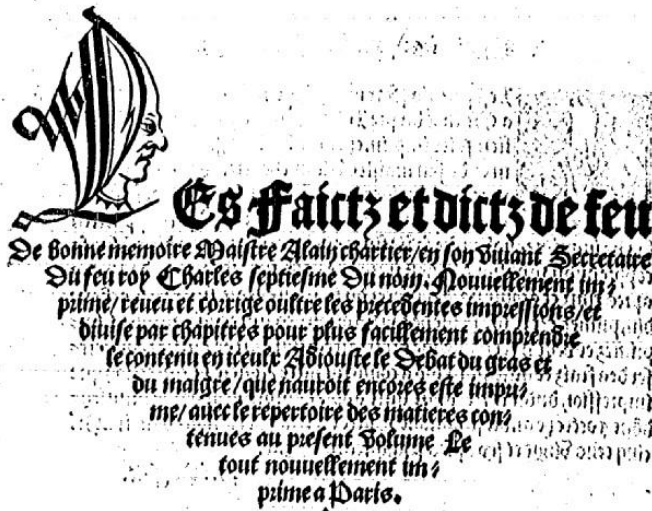 LEs Faictz et dictz de feu
De bonne memoire Maistre Alain chartier/en son viuant Secretaire
Du feu roy Charles septiesme du nom. Nouuellement im⸗
prime/reueu et corrige oultre les precedentes impressions/et
diuise par chapitres pour plus facillement comprendre
le contenu en iceulx Adiouste le Debat du gras et
du maigre/que nauroit encores este impri⸗
me/auec le repertoire des matieres con⸗
tenues au present volume Le
tout nouuellement im⸗
prime a Paris.